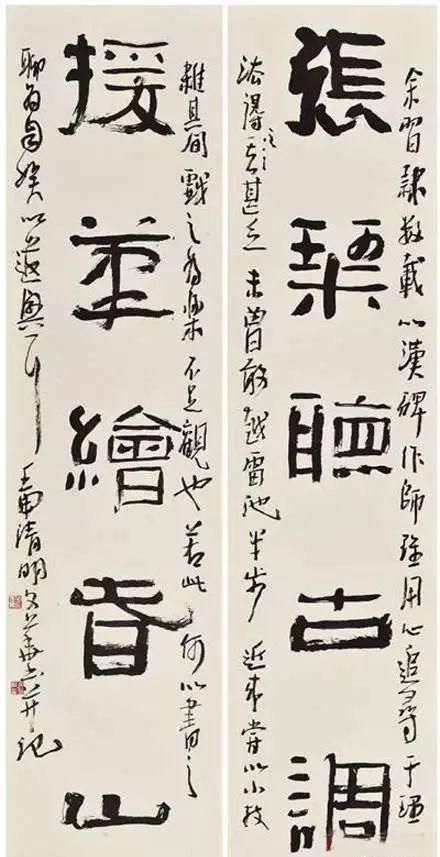 余習隸數載以漢碑作師雖用心追尋于理
張琴聽古調
法得之甚乏未曾敢越雷池半步近來嘗以小技
雜其間戲之為樂不足觀也若此何以書之
援筆繪春山
聊為自娛以之遣興 清明 并記